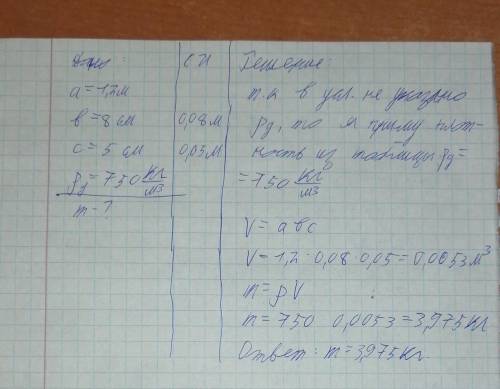 Дано:
СИ
Решение:
a = 1,2 м
в = 8 см
0,08 м
c = 5 см
0,05 м
ρд = 750 кг/м3
m - ?
т.к в усл. не указано
ρд, то я приму плот-
ность из таблицы ρд =
= 750 кг/м3
V = a в c
V = 1,2 · 0,08 · 0,05 = 0,0053 м3
m = ρV
m = 750 0,0053 = 3,975 кг
Ответ: m = 3,975 кг